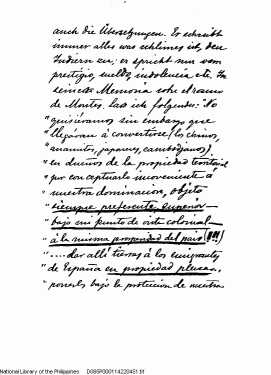 auch die Übersetzungen. Er schreibt
immer alles was schlimes ist, den
Indiern zu; er spricht nur vom
prestigio, sueldo, indolencia etc. In
seiner Memoria sobre el ramo
de Montes. las ich folgendes: "No
"quisiéramos sin embargo, que
"llegáran á convertirse (los chinos,
"anamitas, japones, cambodjanos)
"en dueños de la propiedad territorial
"por conceptuarlo inconveniente á
"nuestra dominacion, objeto
"siempre preferente, superior
"bajo mi punto de vista colonial
"á la misma prosperidad del pais (!!!)
"....dar allí tierras á los emigrantes
"de España en propiedad plena,
"ponerlos bajo la proteccion de nuestra
National Library of the Philippines